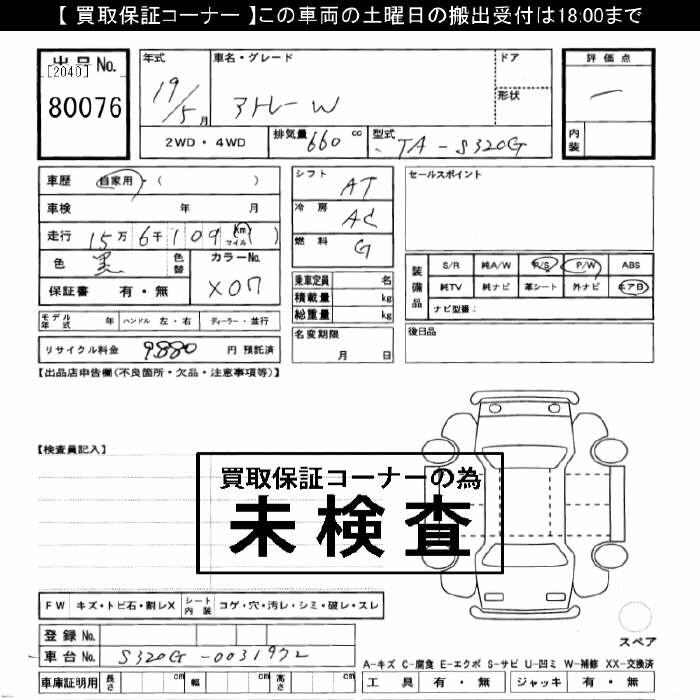 【 買取保証コーナー 】この車両の土曜日の搬出受付は18:00まで
出品No.
[2040]
80076
年式
19/5月
車名・グレード
アトレーW
ドア
形状
2WD・4WD
排気量 660 cc
型式 TA-S320G
評価点
ー
内装
車歴 自家用・( )
車検 年 月
走行 15万6千109 Km マイル ( )
色 黒 色替
カラーNo. X07
保証書 有・無
シフト AT
冷房 AC
燃料 G
乗車定員 名
積載量 kg
総重量 kg
セールスポイント
装備品
S/R 純A/W P/S P/W ABS
純TV 純ナビ 革シート 外ナビ エアB
ナビ型番:
モデル年式 年 ハンドル 左・右 ディーラー・並行
名変期限
月 日
後日品
リサイクル料金 9,880 円 預託済
【出品店申告欄(不良箇所・欠品・注意事項等)】
【検査員記入】
買取保証コーナーの為
未検査
FW キズ・トビ石・割レX シート内装 コゲ・穴・汚レ・シミ・破レ・スレ
登録No.
車台No. S320G-0031972
スペア
A-キズ C-腐食 E-エクボ S-サビ U-凹ミ W-補修 XX-交換済
車庫証明用 長さ cm 幅 cm 高さ cm
工具 有・無 ジャッキ 有・無